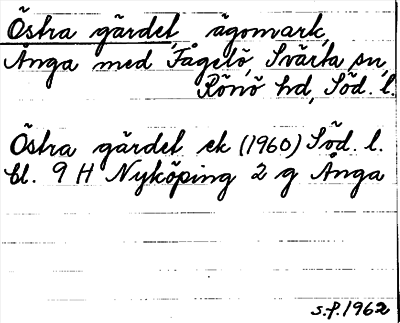 Östra gärdet, ägomark,
Ånga med Fågelö, Svärta sn,
Rönö hd, Söd. l.
Östra gärdet ek (1960) Söd. l.
bl. 9 H Nyköping 2 g Ånga
s.f. 1962